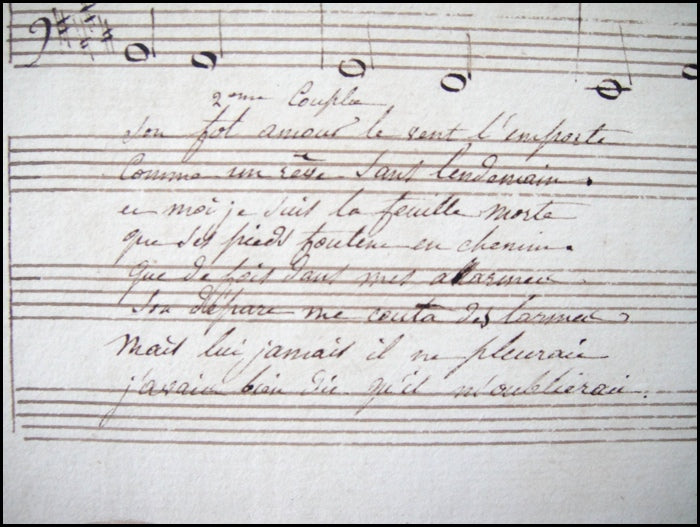 2eme Couplet
Son fol amour le vent l'emporte
Comme un rêve sans lendemain.
et moi je suis la feuille morte
que ses pieds foulent en chemin.
Que de fois dans mes allarmes
Son départ me couta des larmes
Mais lui jamais il ne pleurait
j'avais bien dit qu'il m'oublierait.